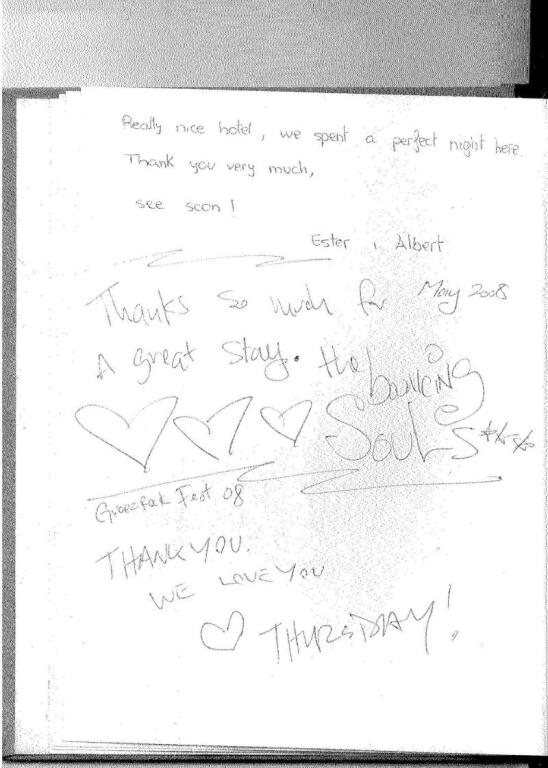 Really nice hotel, we spent a perfect night here.
Thank you very much,
see soon!
Ester i Albert
Thanks so much for May 2008
A great stay. the bouncing
Souls
Groezrock Fest 08
THANK YOU.
WE LOVE YOU
THURSDAY!